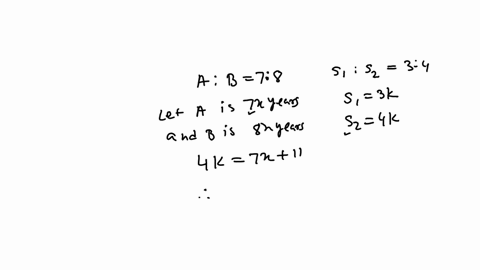 A : B = 7:8
Let A is 7x years
and B is 8x years
4k = 7x + 11
∴
S₁ : S₂ = 3:4
S₁ = 3k
S₂ = 4k